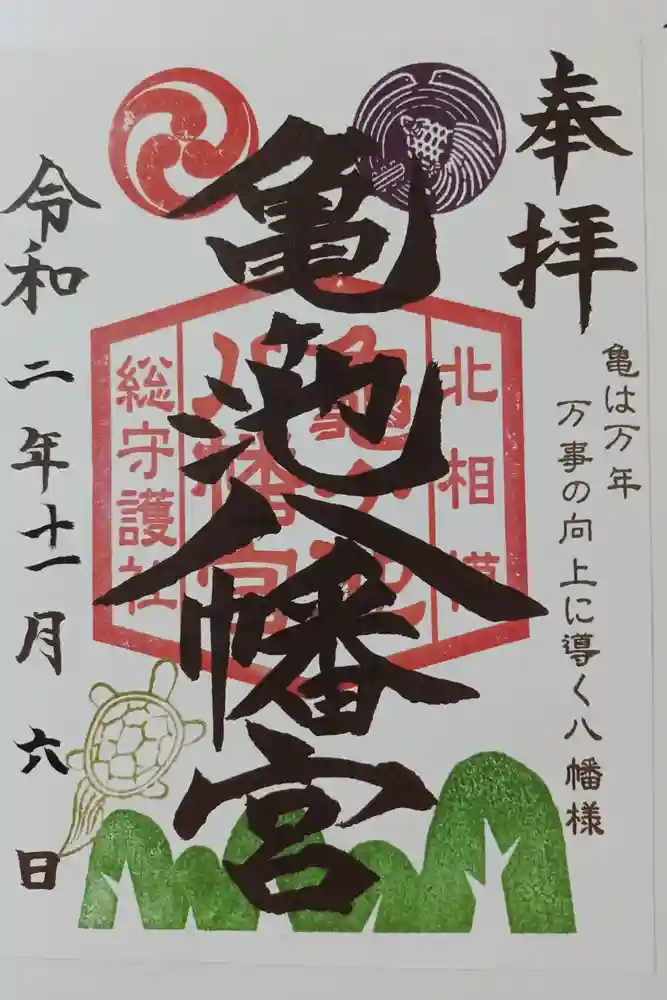 奉拝
亀は万年
万事の向上に導く八幡様
亀池八幡宮
北相模
亀ヶ池
八幡宮
総守護社
令和二年十一月六日